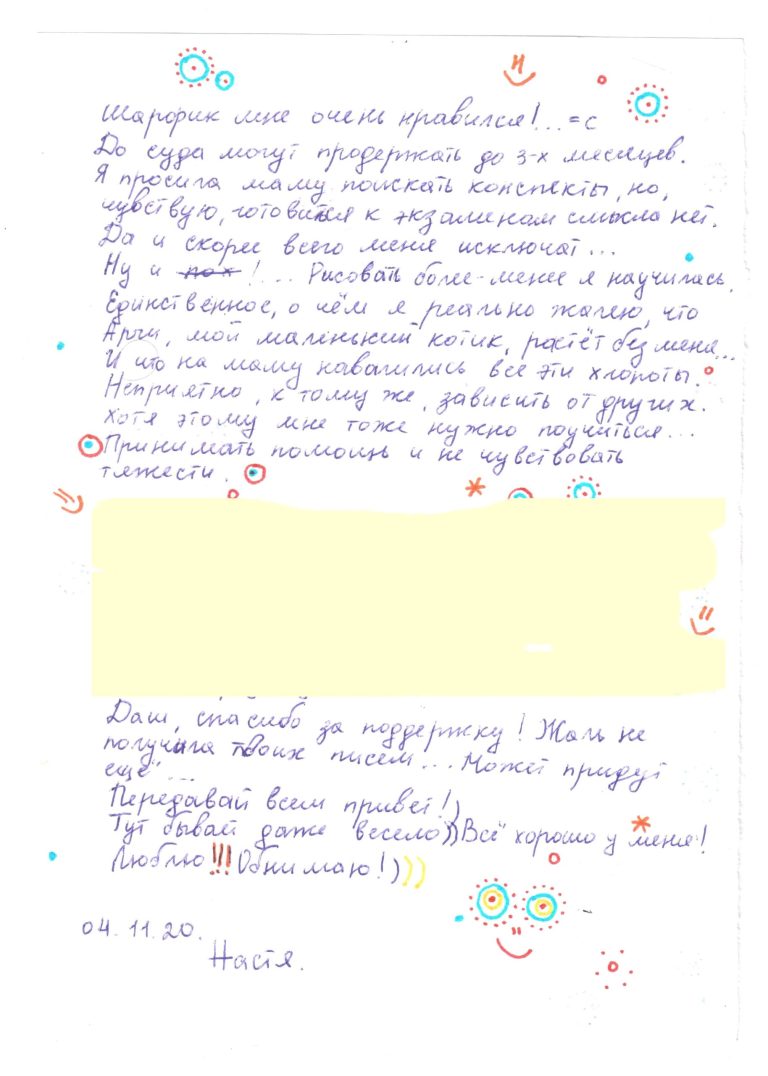 Шарфик мне очень нравился!... =с
До суда могут продержать до 3-х месяцев.
Я просила маму поискать конспекты, но,
чувствую, готовиться к экзаменам смысла нет.
Да и скорее всего меня исключат...
Ну и пох!... Рисовать более-менее я научилась.
Единственное, о чём я реально жалею, что
Арчи, мой маленький котик, растёт без меня...
И что на маму навалились все эти хлопоты.
Неприятно, к тому же, зависить от других.
Хотя этому мне тоже нужно поучиться...
Принимать помощь и не чувствовать
тяжести.
Даш, спасибо за поддержку! Жаль не
получила твоих писем... Может придут
ещё...
Передавай всем привет!)
Тут бывай даже весело)) Всё хорошо у меня!
Люблю!!! Обнимаю!)))
04.11.20.
Настя.